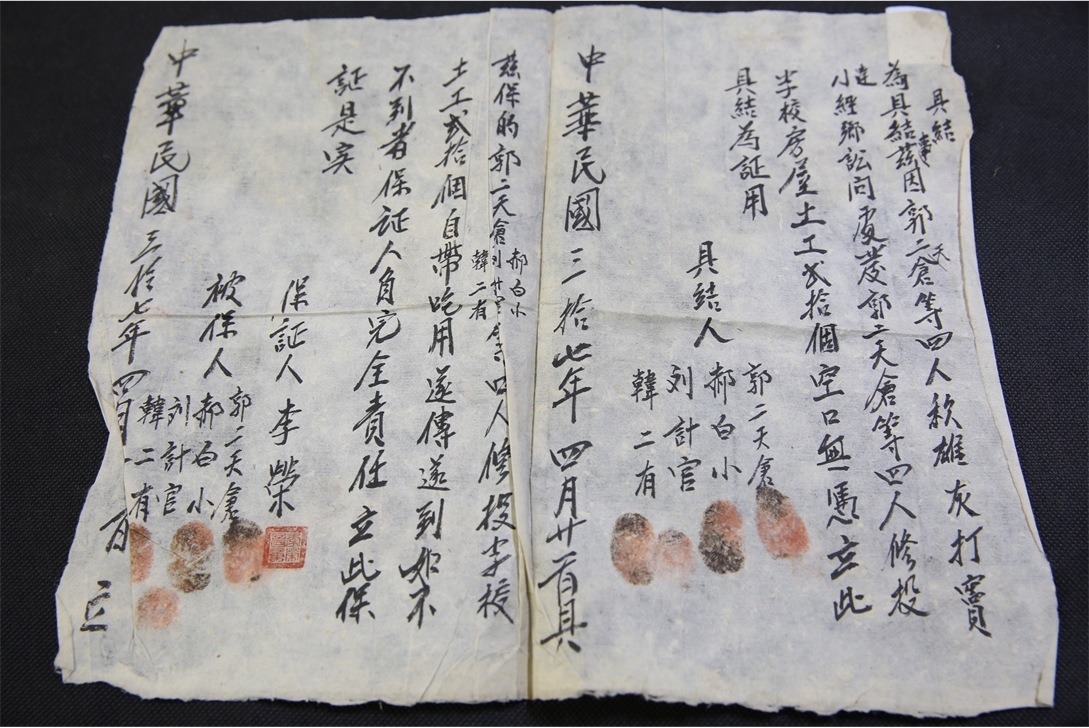 具結
為具結事茲因郭二天倉等四人秋雄灰打竇
小達經鄉訟问處发郭二天倉等四人修投
学校房屋土工弍拾個空口無憑立此
具結為証用
具結人
郭二天倉
郝白小
刘計官
韓二有
中華民國三拾七年四月廿一日具
茲保的郭二天倉
郝白小
韓二有
四人修投学校
土工弍拾個自帶吃用遂傳遂到如不
不到者保証人自完全責任立此保
証是实
保証人李榮
被保人
郭二天倉
郝白小
刘計官
韓二有
中華民國三拾七年四月
日立